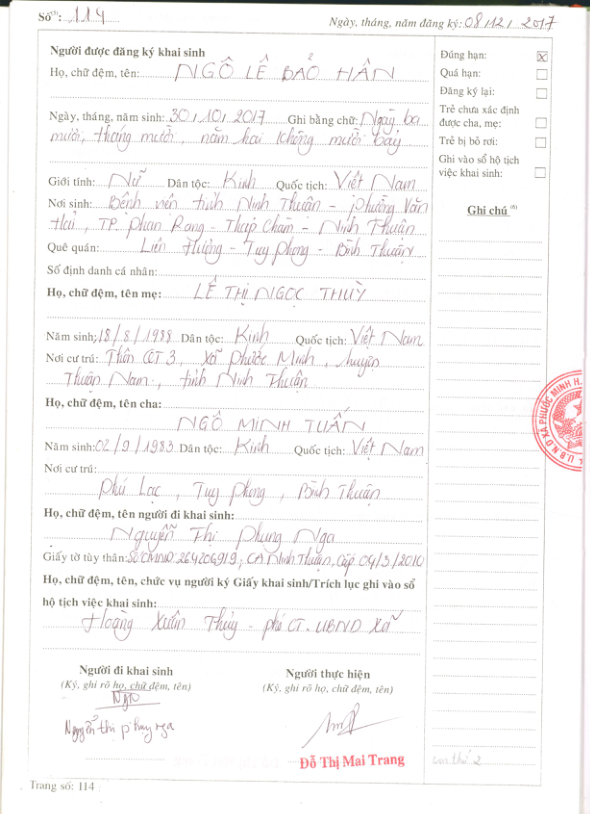 Số: 114
Ngày, tháng, năm đăng ký: 08/12/2017
Người được đăng ký khai sinh
Họ, chữ đệm, tên: NGÔ LÊ BẢO HÂN
Ngày, tháng, năm sinh: 30/10/2017 Ghi bằng chữ: Ngày ba
mươi, tháng mười, năm hai không mười bảy
Giới tính: Nữ Dân tộc: Kinh Quốc tịch: Việt Nam
Nơi sinh: Bệnh viện tỉnh Ninh Thuận - phường Văn
Hải, TP. Phan Rang - Tháp Chàm - Ninh Thuận
Quê quán: Liên Hương - Tuy Phong - Bình Thuận
Số định danh cá nhân:
Họ, chữ đệm, tên mẹ: LÊ THỊ NGỌC THUỲ
Năm sinh: 18/8/1988 Dân tộc: Kinh Quốc tịch: Việt Nam
Nơi cư trú: Thôn CT 3, Xã Phước Minh, huyện
Thuận Nam, tỉnh Ninh Thuận
Họ, chữ đệm, tên cha:
NGÔ MINH TUẤN
Năm sinh: 02/9/1983 Dân tộc: Kinh Quốc tịch: Việt Nam
Nơi cư trú:
Phú Lạc, Tuy Phong, Bình Thuận
Họ, chữ đệm, tên người đi khai sinh:
Nguyễn Thị Phung Nga
Giấy tờ tùy thân: Số CMND: 264206919; CA Ninh Thuận, Cấp 04/3/2010
Họ, chữ đệm, tên, chức vụ người ký Giấy khai sinh/Trích lục ghi vào sổ
hộ tịch việc khai sinh:
Hoàng Xuân Thủy - phó CT. UBND Xã
Người đi khai sinh
(Ký, ghi rõ họ, chữ đệm, tên)
Nga
Nguyễn thị phung nga
Người thực hiện
(Ký, ghi rõ họ, chữ đệm, tên)
Đỗ Thị Mai Trang
Đúng hạn: X
Quá hạn:
Đăng ký lại:
Trẻ chưa xác định
được cha, mẹ:
Trẻ bị bỏ rơi:
Ghi vào sổ hộ tịch
việc khai sinh:
Ghi chú
con thứ 2
U.B.N.D XÃ PHƯỚC MINH H.
Trang số: 114